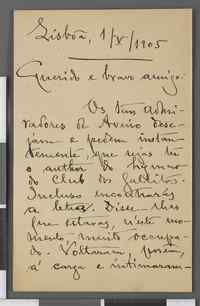 Lisboa, 1/X/1905
Querido e bravo amigo:
Os teus admi-
radores de Aveiro dese-
jam e pedem instan-
temente, que sejas tu
o author do hymno
do Club dos Gallitos.
Incluso encontrarás
a letra. Disse-lhes
que estavas, n'este mo-
mento, muito occupa-
do. Voltaram, porém,
á carga e intimaram-